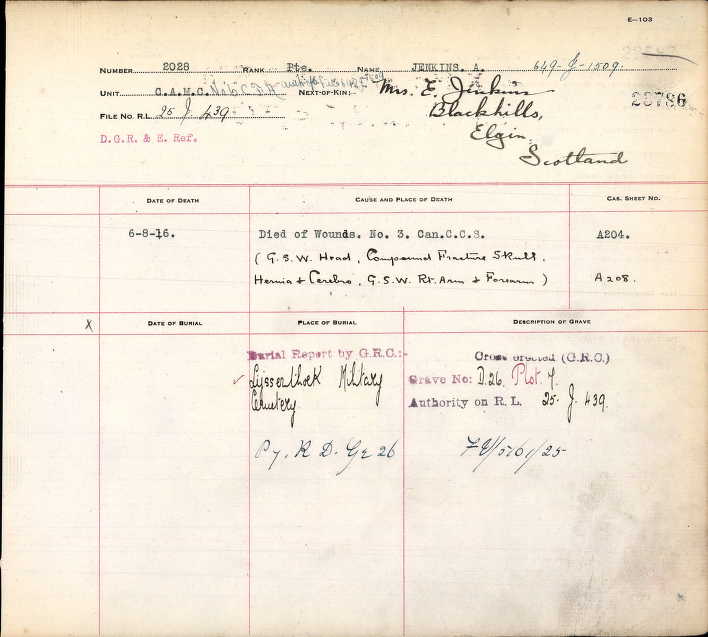 E—103
NUMBER 2028 RANK Pte. NAME JENKINS. A. 649-J-1509.
UNIT C.A.M.C. NEXT-OF-KIN: Mrs. E. Jenkins
Blackhills,
FILE NO. R.L. 25 J. 439
Elgin
Scotland
23786
D.G.R. & E. Ref.
DATE OF DEATH CAUSE AND PLACE OF DEATH CAS. SHEET NO.
6-8-16. Died of Wounds. No. 3. Can.C.C.S. A204.
( G.S.W. Head, Compound Fracture Skull,
Hernia & Cerebro, G.S.W. Rt. Arm & Forearm ) A208.
X DATE OF BURIAL PLACE OF BURIAL DESCRIPTION OF GRAVE
Burial Report by G.R.C:- Cross erected (G.R.C.)
Lijssenthoek Military Grave No: D.26. Plot 7.
Cemetery Authority on R.L. 25. J. 439.
R D. 26